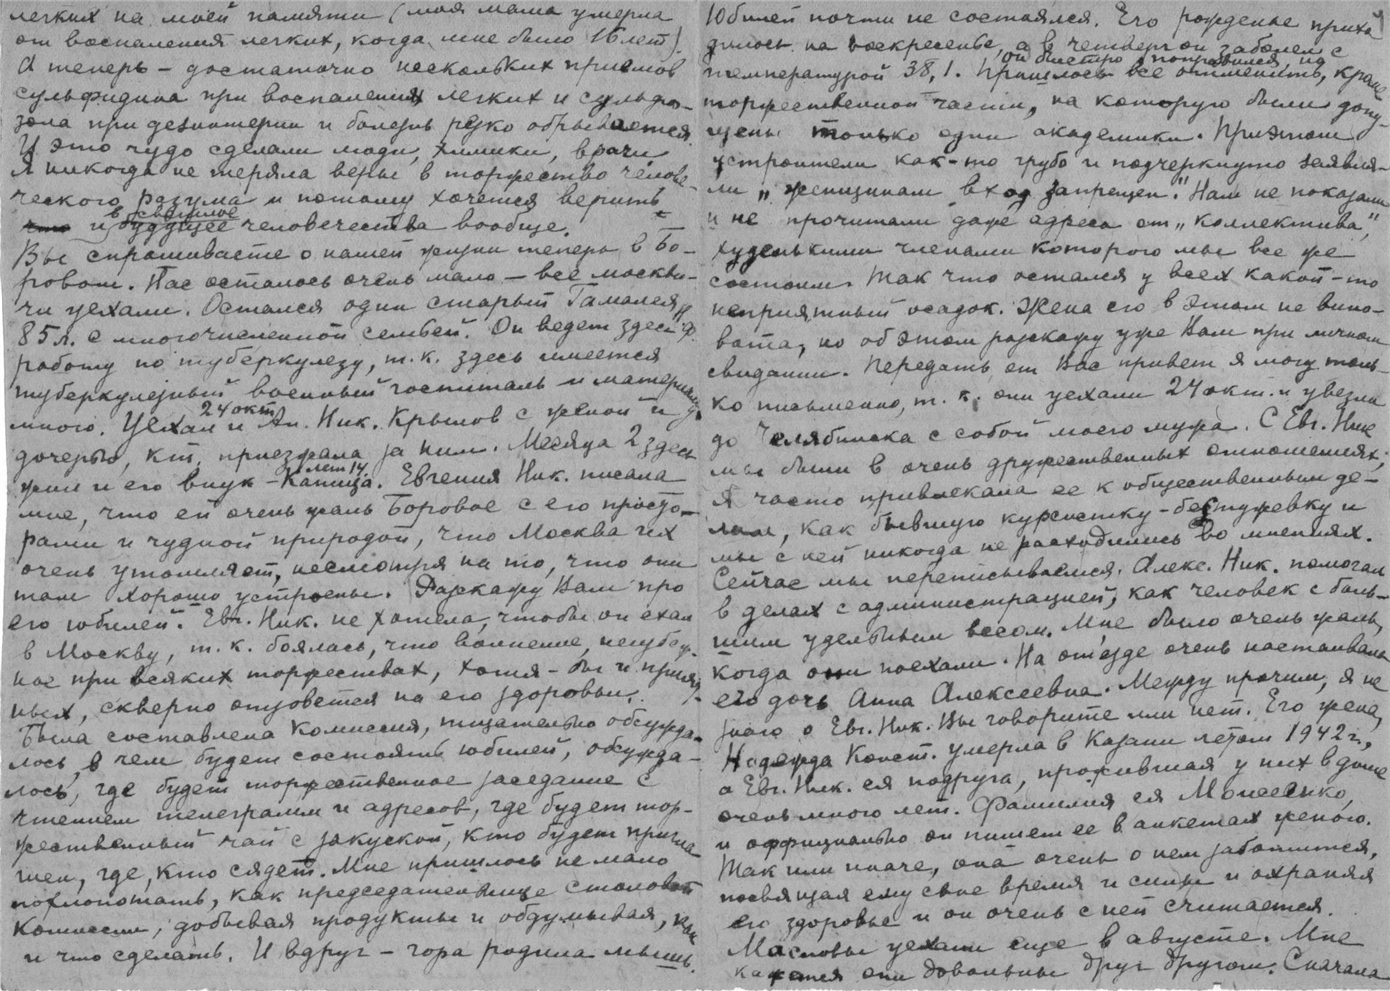 легких на моей памяти (моя мама умерла
от воспаления легких, когда мне было 16 лет).
А теперь – достаточно нескольких приемов
сульфидина при воспалениях легких и сульфа-
зола при дезинтерии и болезнь резко обрывается.
И это чудо сделали люди, химики, врачи.
Я никогда не теряла веры в торжество челове-
ческого разума и потому хочется верить
в светлое
и будущее человечества вообще.
Вы спрашиваете о нашей жизни теперь в Бо-
ровом. Нас осталось очень мало – все москви-
чи уехали. Остался один старый Гамалея Н.Ф.
85 л. с многочисленной семьей. Он ведет здесь
работу по туберкулезу, т.к. здесь имеется
туберкулезный военный госпиталь и материалу
много. Уехал 24 окт. и Ал. Ник. Крылов с женой и
дочерью, кот. приезжала за ним. Месяца 2 здесь
жил и его внук – Капица лет 14. Евгения Ник. писала
мне, что ей очень жаль Боровое с его просто-
рами и чудной природой, что Москва их
очень утомляет, несмотря на то, что они
там хорошо устроены. Расскажу Вам про
его юбилей. Евг. Ник. не хотела, чтобы он ехал
в Москву, т.к. боялась, что волнение, неизбеж-
ное при всяких торжествах, хотя-бы и прият-
ных, скверно отзовется на его здоровьи.
Была составлена Комиссия, тщательно обсужда-
лось, в чем будет состоять юбилей, обсужда-
лось, где будет торжественное заседание с
чтением телеграмм и адресов, где будет тор-
жественный чай с закуской, кто будет пригла-
шен, где, кто сядет. Мне пришлось не мало
похлопотать, как председательнице столовой
Комиссии, добывая продукты и обдумывая, как
и что сделать. И вдруг – гора родила мышь.
Юбилей почти не состоялся. Его рождение прихо-
дилось на воскресенье, а в четверг он заболел с
температурой 38,1. он быстро поправился, но Пришлось все отменить, кроме
торжественной части, на которую были допу-
щены только одни академики. При этом
устроители как-то грубо и подчеркнуто заявля-
ли „женщинам вход запрещен". Нам не показали
и не прочитали даже адреса от „коллектива",
худенькими членами которого мы все же
состоим. Так что остался у всех какой-то
неприятный осадок. Жена его в этом не вино-
вата, но об этом расскажу уже Вам при личном
свидании. Передать от Вас привет я могу толь-
ко письменно, т.к. они уехали 24 окт. и увезли
до Челябинска с собой моего мужа. С Евг. Ник
мы были в очень дружественных отношениях;
я часто привлекала ее к общественным де-
лам, как бывшую курсистку-бестужевку и
мы с ней никогда не расходились во мнениях.
Сейчас мы переписываемся. Алекс. Ник. помогал
в делах с администрацией, как человек с боль-
шим удельным весом. Мне было очень жаль,
когда они поехали. На от'езде очень настаивала
его дочь Анна Алексеевна. Между прочим, я не
знаю о Евг. Ник. Вы говорите или нет. Его жена,
Надежда Конст. умерла в Казани летом 1942 г.,
а Евг. Ник. ея подруга, прожившая у них в доме
очень много лет. Фамилия ея Моисеенко,
и оффициально он пишет ее в анкетах женою.
Так или иначе, она очень о нем заботится,
посвящая ему свое время и силы и охраняя
его здоровье и он очень с ней считается.
Масловы уехали еще в августе. Мне
кажется они довольны друг другом. Сначала